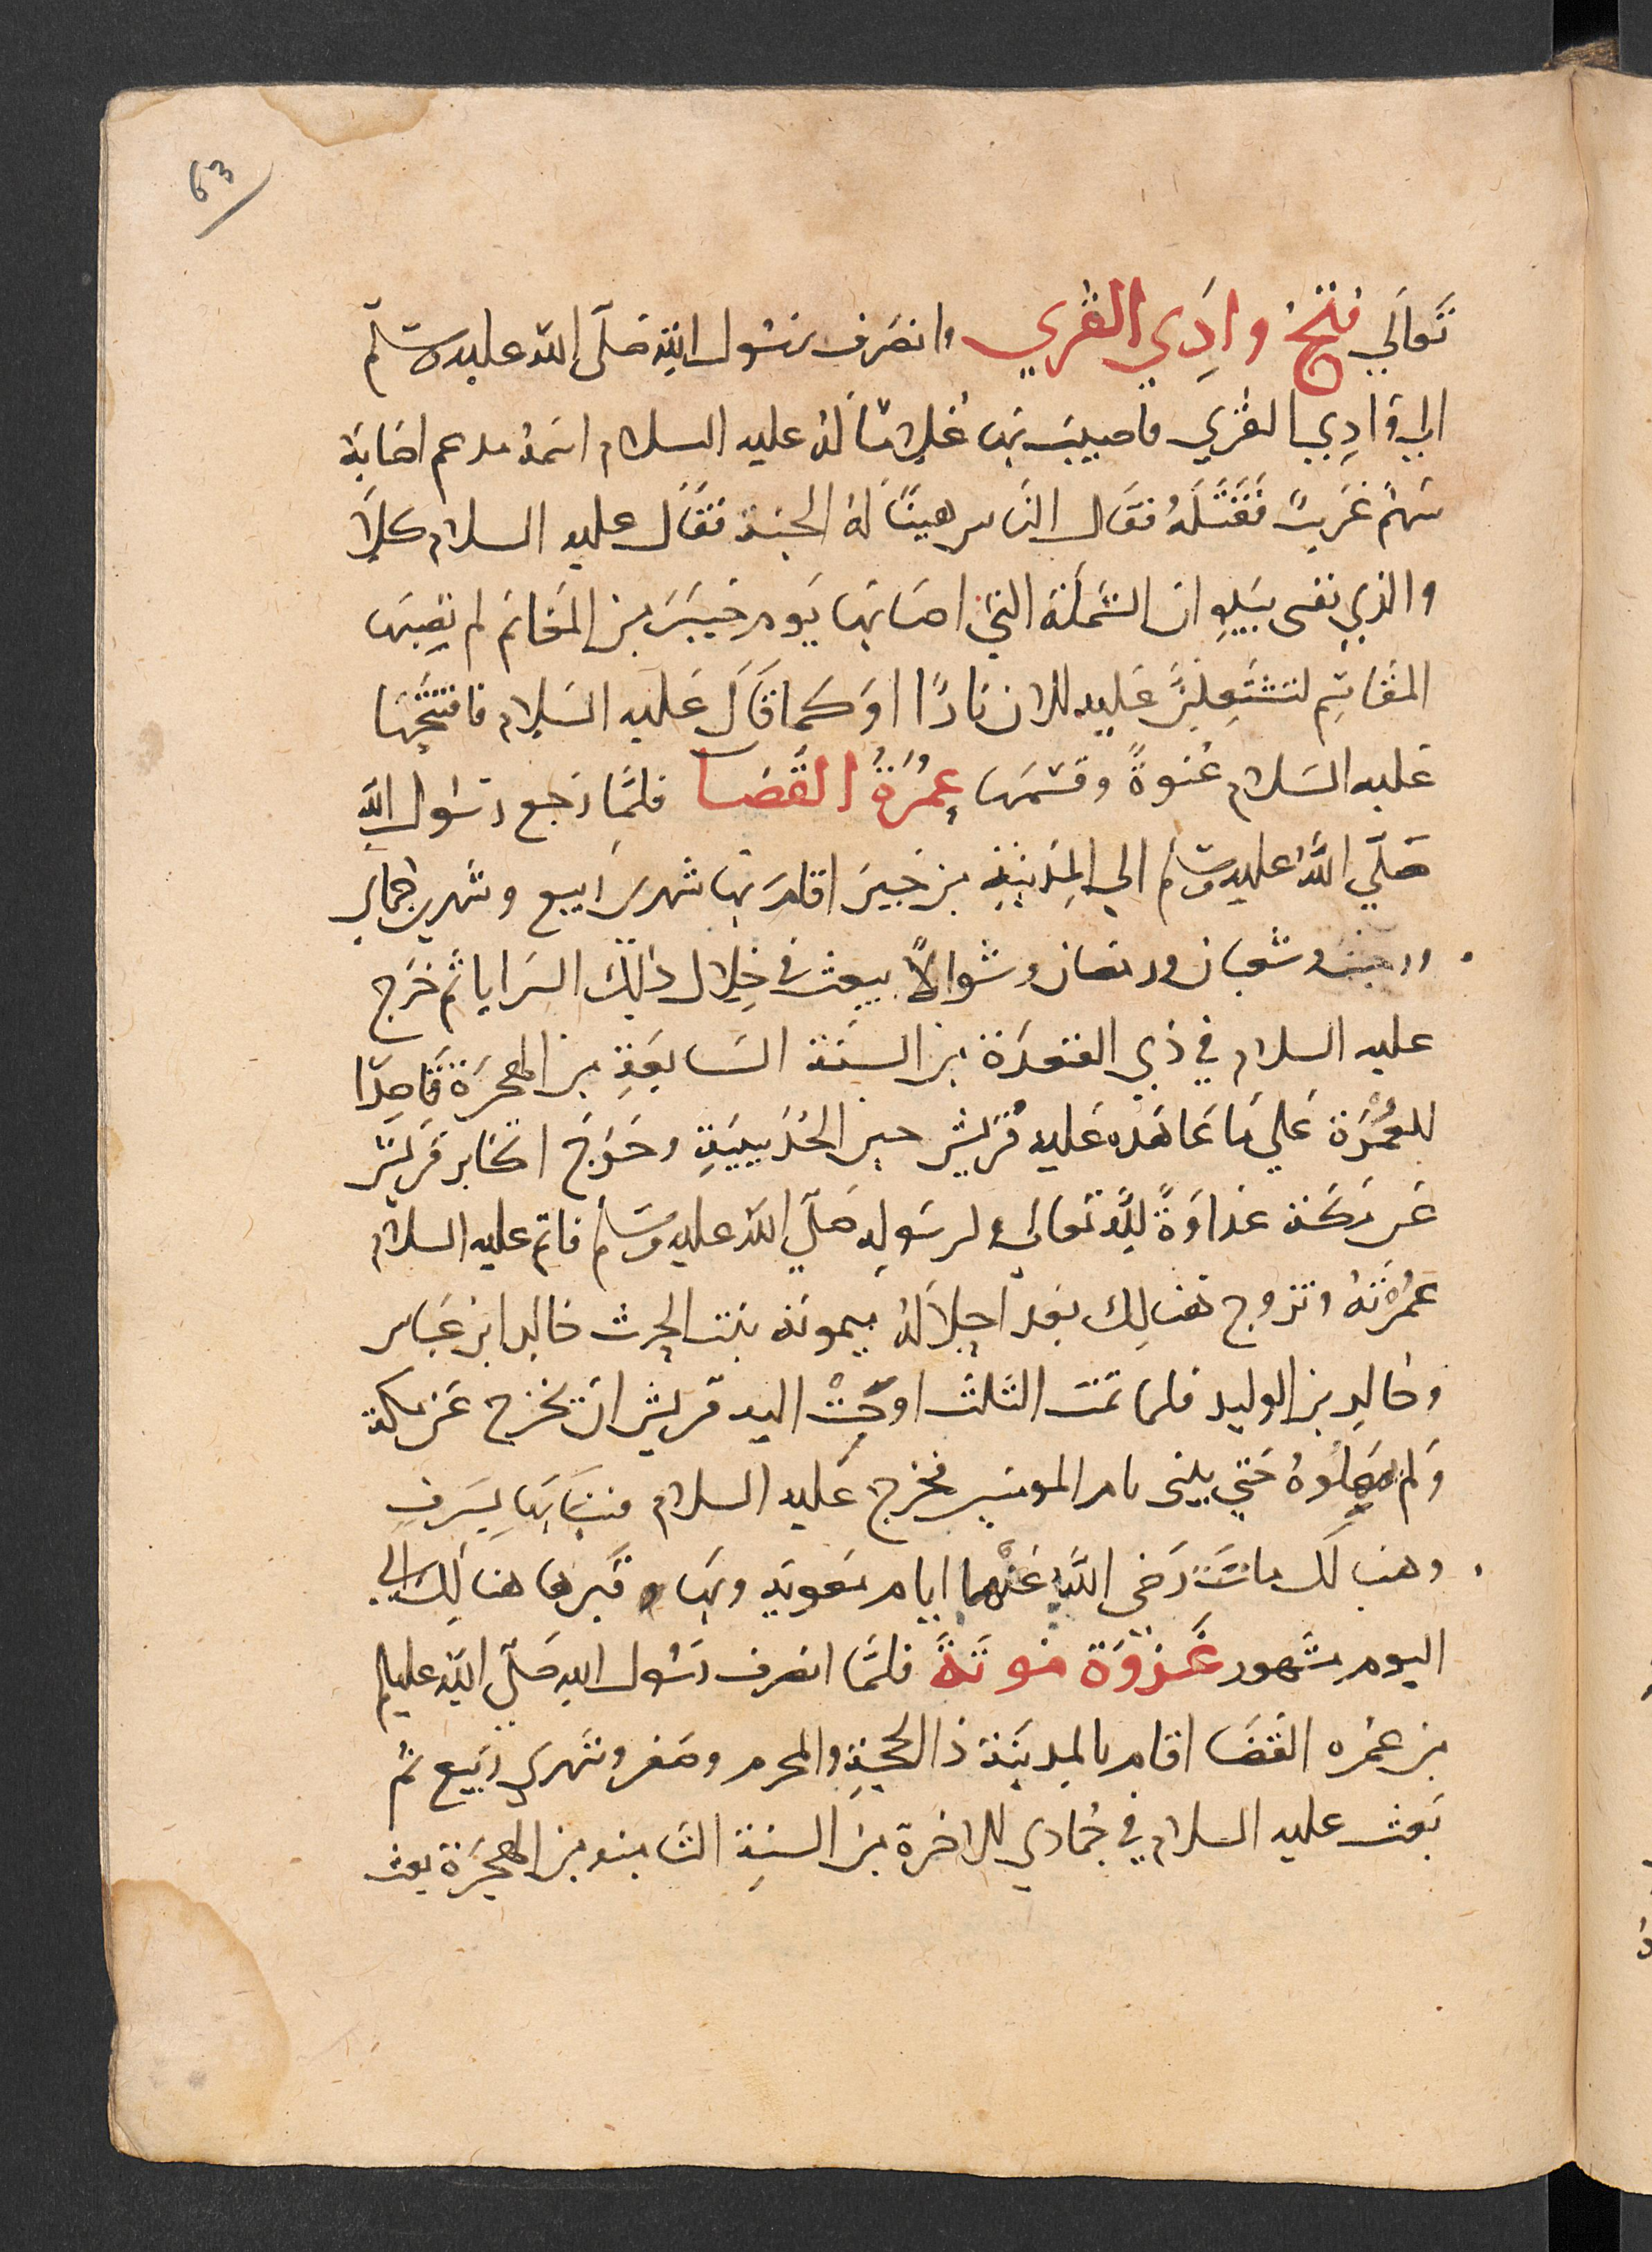 63
تعالي فتح وادي القري وانصرف رسول الله صلى الله عليه وسلم
الي وادي القري فاصيب بها غلاما له عليه السلام اسمه مدعم اصابه
سهم غرب فقتله فقال الناس هنيئا له الجنة فقال عليه السلام كلا
والذي نفسى بيده ان الشملة التي اصابها يوم خيبر من المغانم لم تصبها
المقاسم لتشتعلن عليه للان نارا او كما قال عليه السلام فافتتحها
عليه السلام عنوة وقسمها عمرة القضا فلما رجع رسول الله
صلي الله عليه وسلم الي المدينة من خيبر اقام بها شهر ربيع وشهري جمادي
ورجب وشعبان ورمضان وشوالا يبعث في خلال ذلك السرايا ثم خرج
عليه السلام في ذي القعدة من السنة السابعة من الهجرة قاصدا
للعمرة علي ما عاهده عليه قريش حين الحديبية وخرج اكابر قريش
عن مكة عداوة لله تعالي ولرسوله صلي الله عليه وسلم فاتم عليه السلام
عمرته وتزوج هنالك بعد احلاله ميمونة بنت الحرث خاله ابن عباس
وخالد بن الوليد فلما تمت الثلث اوجبت اليه قريش ان يخرج عن مكة
ولم يمهلوه حتي يبنى بام المومنين فخرج عليه السلام فبنا بها بسرف
وهنالك ماتت رضى الله عنهما ايام معويه وبها وقبرها هنالك الي
اليوم مشهور غزوة موتة فلما انصرف رسول الله صلي الله عليه وسلم
من عمره القضا اقام بالمدينة ذا الحجة والمحرم وصفر وشهري ربيع ثم
بعث عليه السلام في جمادي للاخرة من السنة الثامنه من الهجرة بعث